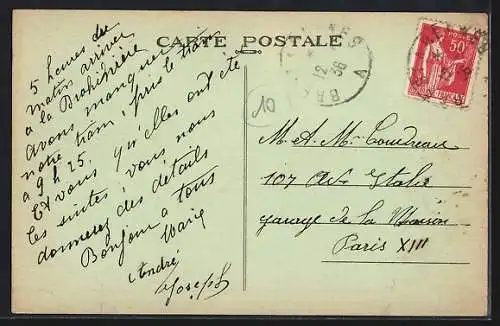 CARTE POSTALE
5 heures du
matin arriver
à la Brohinière
avons manquer
notre tram pris le train
a 9 h 25.
Et vous qu'elles ont été
les suites, vous nous
donnerez des détails
Bonjour a tous
Marie
André
Joseph
10
50
POSTES
12
36
M. et M. Coudreau
107 Av. Italie
garage de la Maison
Paris XIII